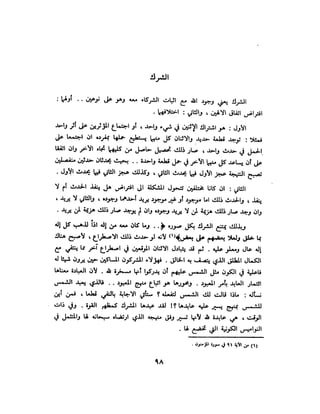 الشرك
الشرك يعني وجود الله مع اثبات الشركاء معه وهو على نوعين .. أولها :
افتراض اتفاق الالهين ، والثاني : اختلافهما .
الأول : هو اشتراك الإثنين في شيء واحد ، أو اجتماع المؤثرين على أثر واحد
فمثلا : توجد قطعة حديد والاثنان كل منهما يستطيع حملها بمفرده ان اجتمعا على
الحمل في حدث واحد ، صار ذلك تحصيل حاصل من كليهما تجاه الآخر وان اتفقا
على أن يساعد كل منهما الآخر في حمل قطعة واحدة .. بحيث يحدثان حدثين منفصلين
تصبح النتيجة عجز الأول فيما يحدث الثاني ، وكذلك عجز الثاني فيما يحدث الأول .
الثاني : ان كانا مختلفين فتحول المشكلة الى افتراض هل ينفذ الحدث أم لا
ينفذ ، والحدث ذلك اما موجود أو غير موجود يريد أحدهما وجوده ، والثاني لا يريد ،
وان وجد صار ذلك هزيمة لمن لا يريد وجوده وان لم يوجد صار ذلك هزيمة لمن يريد .
وبذلك يمتنع الشرك بكل صوره ﴿.. وما كان معه من إله اذاً لذهب كل إله
بما خلق ولعلا بعضهم على بعض﴾(١) لأنه لو حدث ذلك الاصطراع ، لأصبح هناك
إله عال ومعلو عليه . ثم قد يتبادل الاثنان الموقعين في اصطراع آخر مما يتنافى مع
الكمال المطلق الذي يتصف به الخالق . فهؤلاء المشركون المساكين حين يرون شيئا له
فاعلية في الكون مثل الشمس عليهم أن يدركوا أنها مسخرة لله . لأن العبادة معناها
ائتمار العابد بأمر المعبود .. ومحورها هو اتباع منهج المعبود .. فالذي يعبد الشمس
نسأله : ماذا قالت لك الشمس لتفعله ؟ ستأتي الاجابة بالنفي قطعا ، فمن أين
للشمس بمنهج يسير عليه عابدها ؟! لقد عبدها المشرك كمظهر القوة . وفي ذات
الوقت ، هي عابدة لله لأنها تسير وفق منهجه الذي ارتضاه سبحانه لها والمتمثل في
النواميس الكونية التي تخضع لها .
(١) من الآية ٩١ في سورة المؤمنون .
٩٨